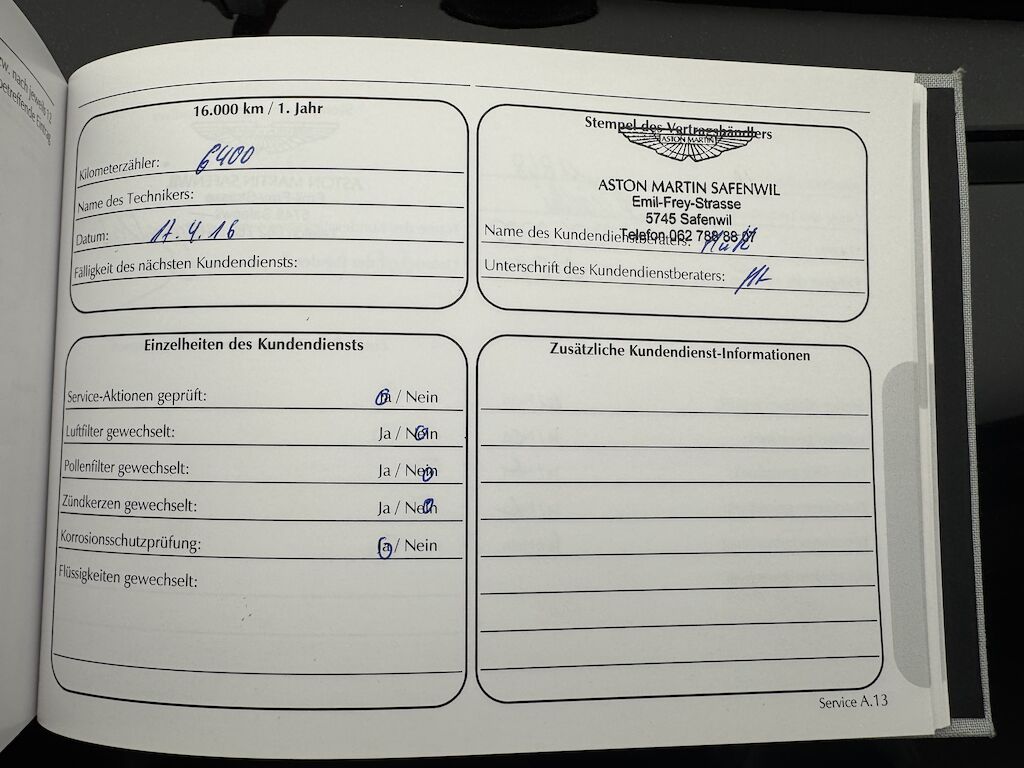 zw. nach jeweils 12
betreffende Eintrag
16.000 km / 1. Jahr
Kilometerzähler: 6400
Name des Technikers:
Datum: 17.4.16
Fälligkeit des nächsten Kundendiensts:
Stempel des Vertragshändlers
ASTON MARTIN
ASTON MARTIN SAFENWIL
Emil-Frey-Strasse
5745 Safenwil
Telefon 062 788 88 07
Name des Kundendienstberaters:
Unterschrift des Kundendienstberaters:
Einzelheiten des Kundendiensts
Service-Aktionen geprüft: Ja / Nein
Luftfilter gewechselt: Ja / Nein
Pollenfilter gewechselt: Ja / Nein
Zündkerzen gewechselt: Ja / Nein
Korrosionsschutzprüfung: Ja / Nein
Flüssigkeiten gewechselt:
Zusätzliche Kundendienst-Informationen
Service A.13